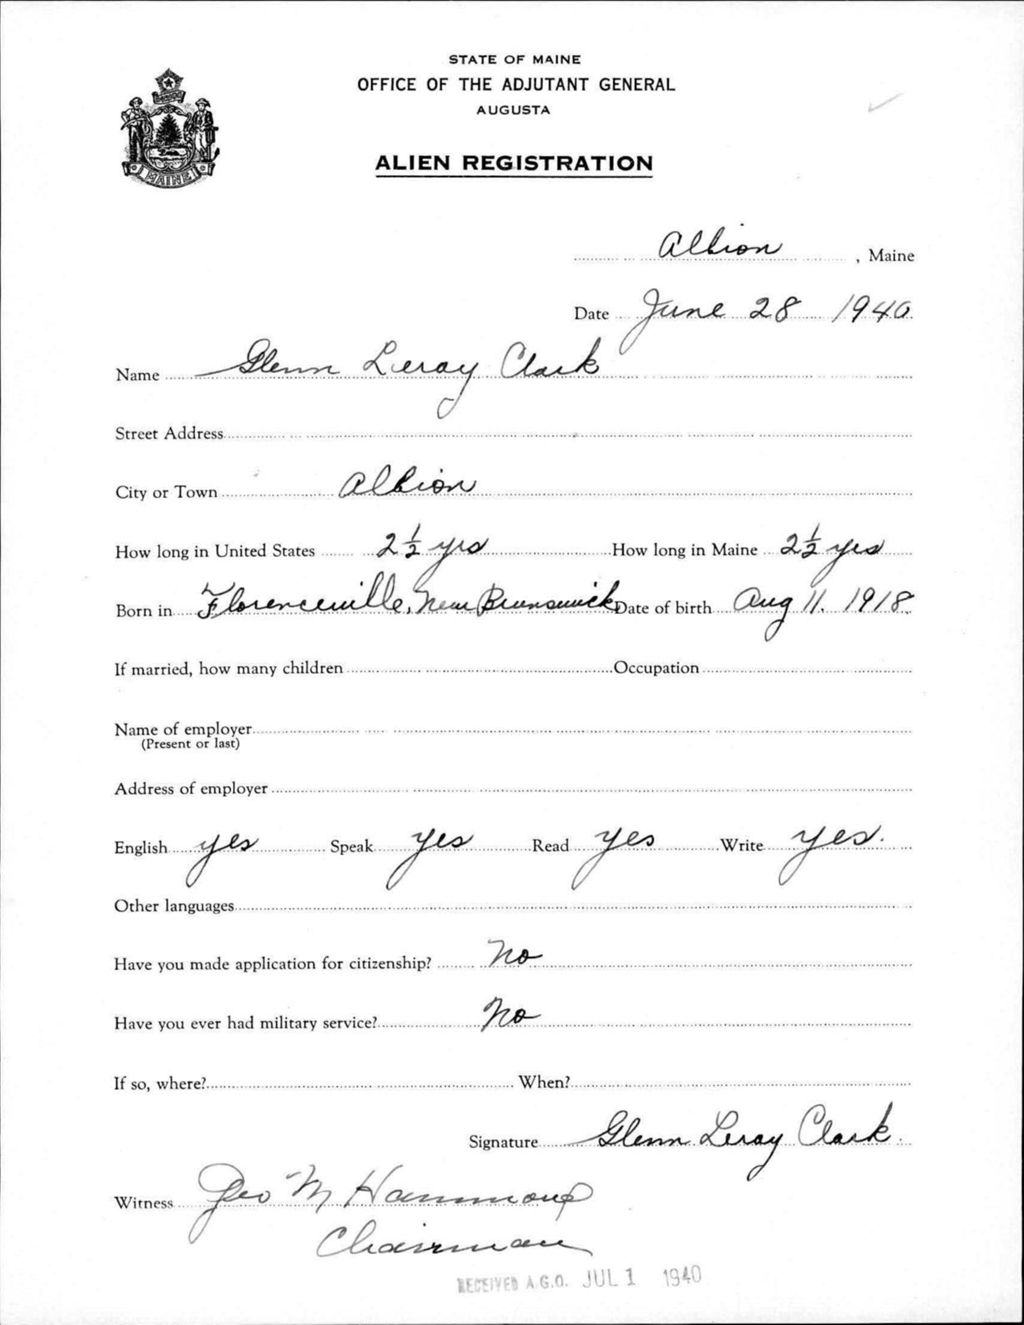 STATE OF MAINE
OFFICE OF THE ADJUTANT GENERAL
AUGUSTA
ALIEN REGISTRATION
MAINE
Albion, Maine
Date June 28 1940
Name Glenn Leroy Clark
Street Address
City or Town Albion
How long in United States 2 1/2 yrs How long in Maine 2 1/2 yrs
Born in Florenceville, New Brunswick Date of birth Aug 11, 1918
If married, how many children Occupation
Name of employer
(Present or last)
Address of employer
English yes Speak yes Read yes Write yes.
Other languages
Have you made application for citizenship? No
Have you ever had military service? No
If so, where? When?
Signature Glenn Leroy Clark
Witness Geo M Hammond
Chairman
RECEIVED A.G.O. JUL 1 1940